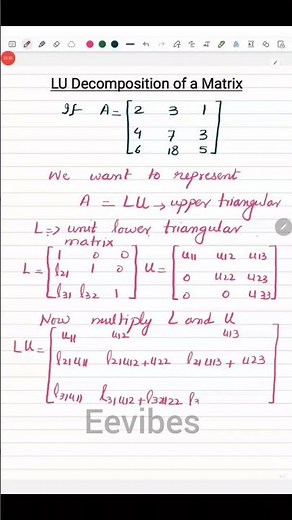 LU Decomposition of a Matrix
If A = [2 3 1
4 7 3
6 18 5]
We want to represent
A = LU → upper triangular
L => unit lower triangular
matrix
L = [1 0 0
l21 1 0
l31 l32 1] U = [u11 u12 u13
0 u22 u23
0 0 u33]
Now multiply L and U
LU = [u11 u12 u13
l21u11 l21u12+u22 l21u13 + u23
l31u11 l31u12+l32u22 l3]
Eevibes